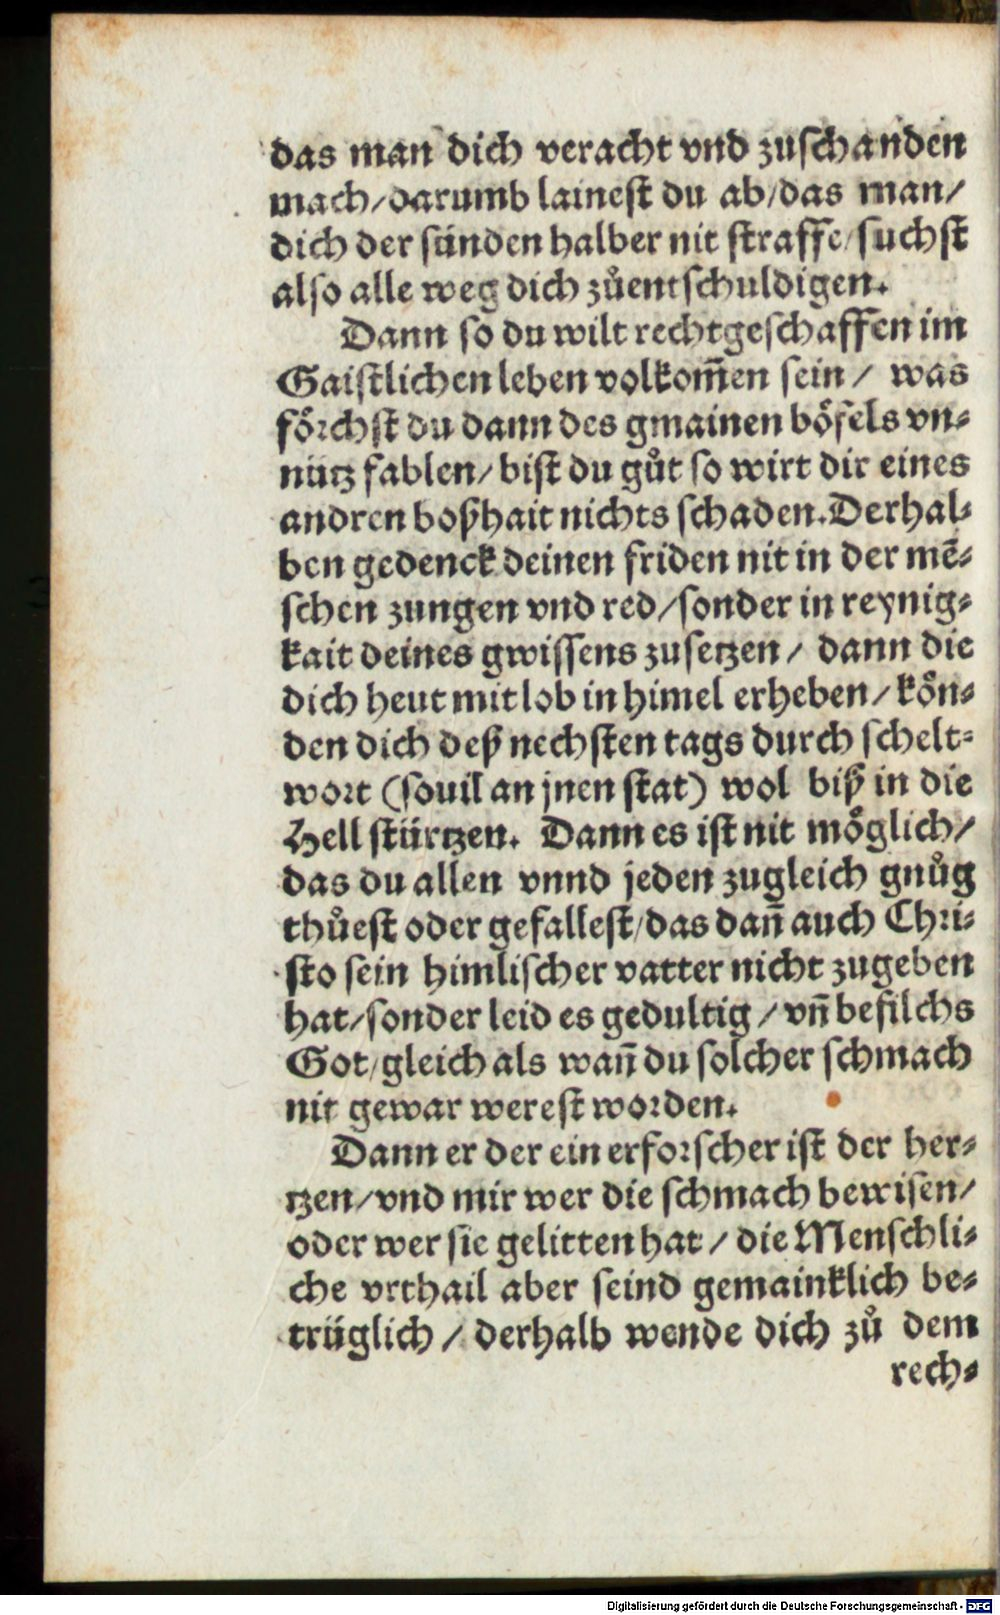 das man dich veracht vnd zuschanden
mach/darumb lainest du ab/das man/
dich der sünden halber nit straffe/suchst
also alle weg dich zůentschuldigen.
Dann so du wilt rechtgeschaffen im
Gaistlichen leben volkom̄en sein/ was
förchst du dann des gmainen böfels vn⸗
nütz fablen/bist du gůt so wirt dir eines
andren boßhait nichts schaden.Derhal⸗
ben gedenck deinen friden nit in der mē⸗
schen zungen vnd red/sonder in reynig⸗
kait deines gwissens zusetzen/ dann die
dich heut mit lob in himel erheben/kön⸗
den dich deß nechsten tags durch schelt⸗
wort (souil an jnen stat) wol biß in die
Hell stürtzen. Dann es ist nit möglich/
das du allen vnnd jeden zugleich gnůg
thůest oder gefallest/das dan̄ auch Chri⸗
sto sein himlischer vatter nicht zugeben
hat/sonder leid es gedultig/vn̄ befilchs
Got/gleich als wan̄ du solcher schmach
nit gewar werest worden.
Dann er der ein erforscher ist der her⸗
tzen/vnd mir wer die schmach bewisen/
oder wer sie gelitten hat/die Menschli⸗
che vrthail aber seind gemainklich be⸗
trüglich/derhalb wende dich zů dem
rech⸗
Digitalisierung gefördert durch die Deutsche Forschungsgemeinschaft - DFG